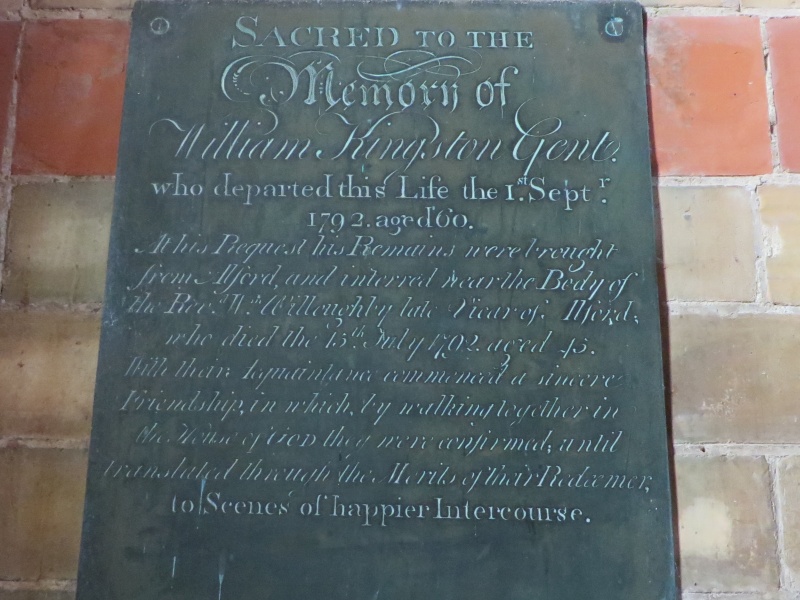 SACRED TO THE
Memory of
William Kingston Gent.
who departed this Life the 1.st Septr.
1792. aged 60.
At his Request his Remains were brought
from Alford, and interred near the Body of
the Revd. Wm. Willoughby late Vicar of Alford;
who died the 15th July 1792 aged 45.
With their Acquaintance commenced a sincere
Friendship, in which, by walking together in
the House of GOD they were confirmed; until
translated through the Merits of their Redeemer,
to Scenes of happier Intercourse.